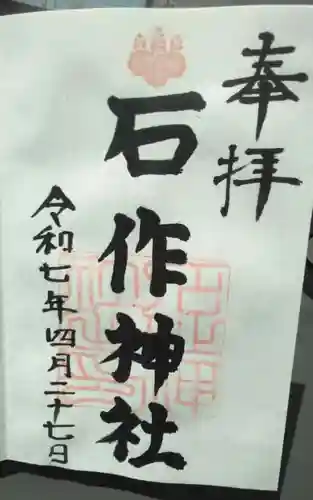 奉拝
石作神社
令和七年四月二十七日